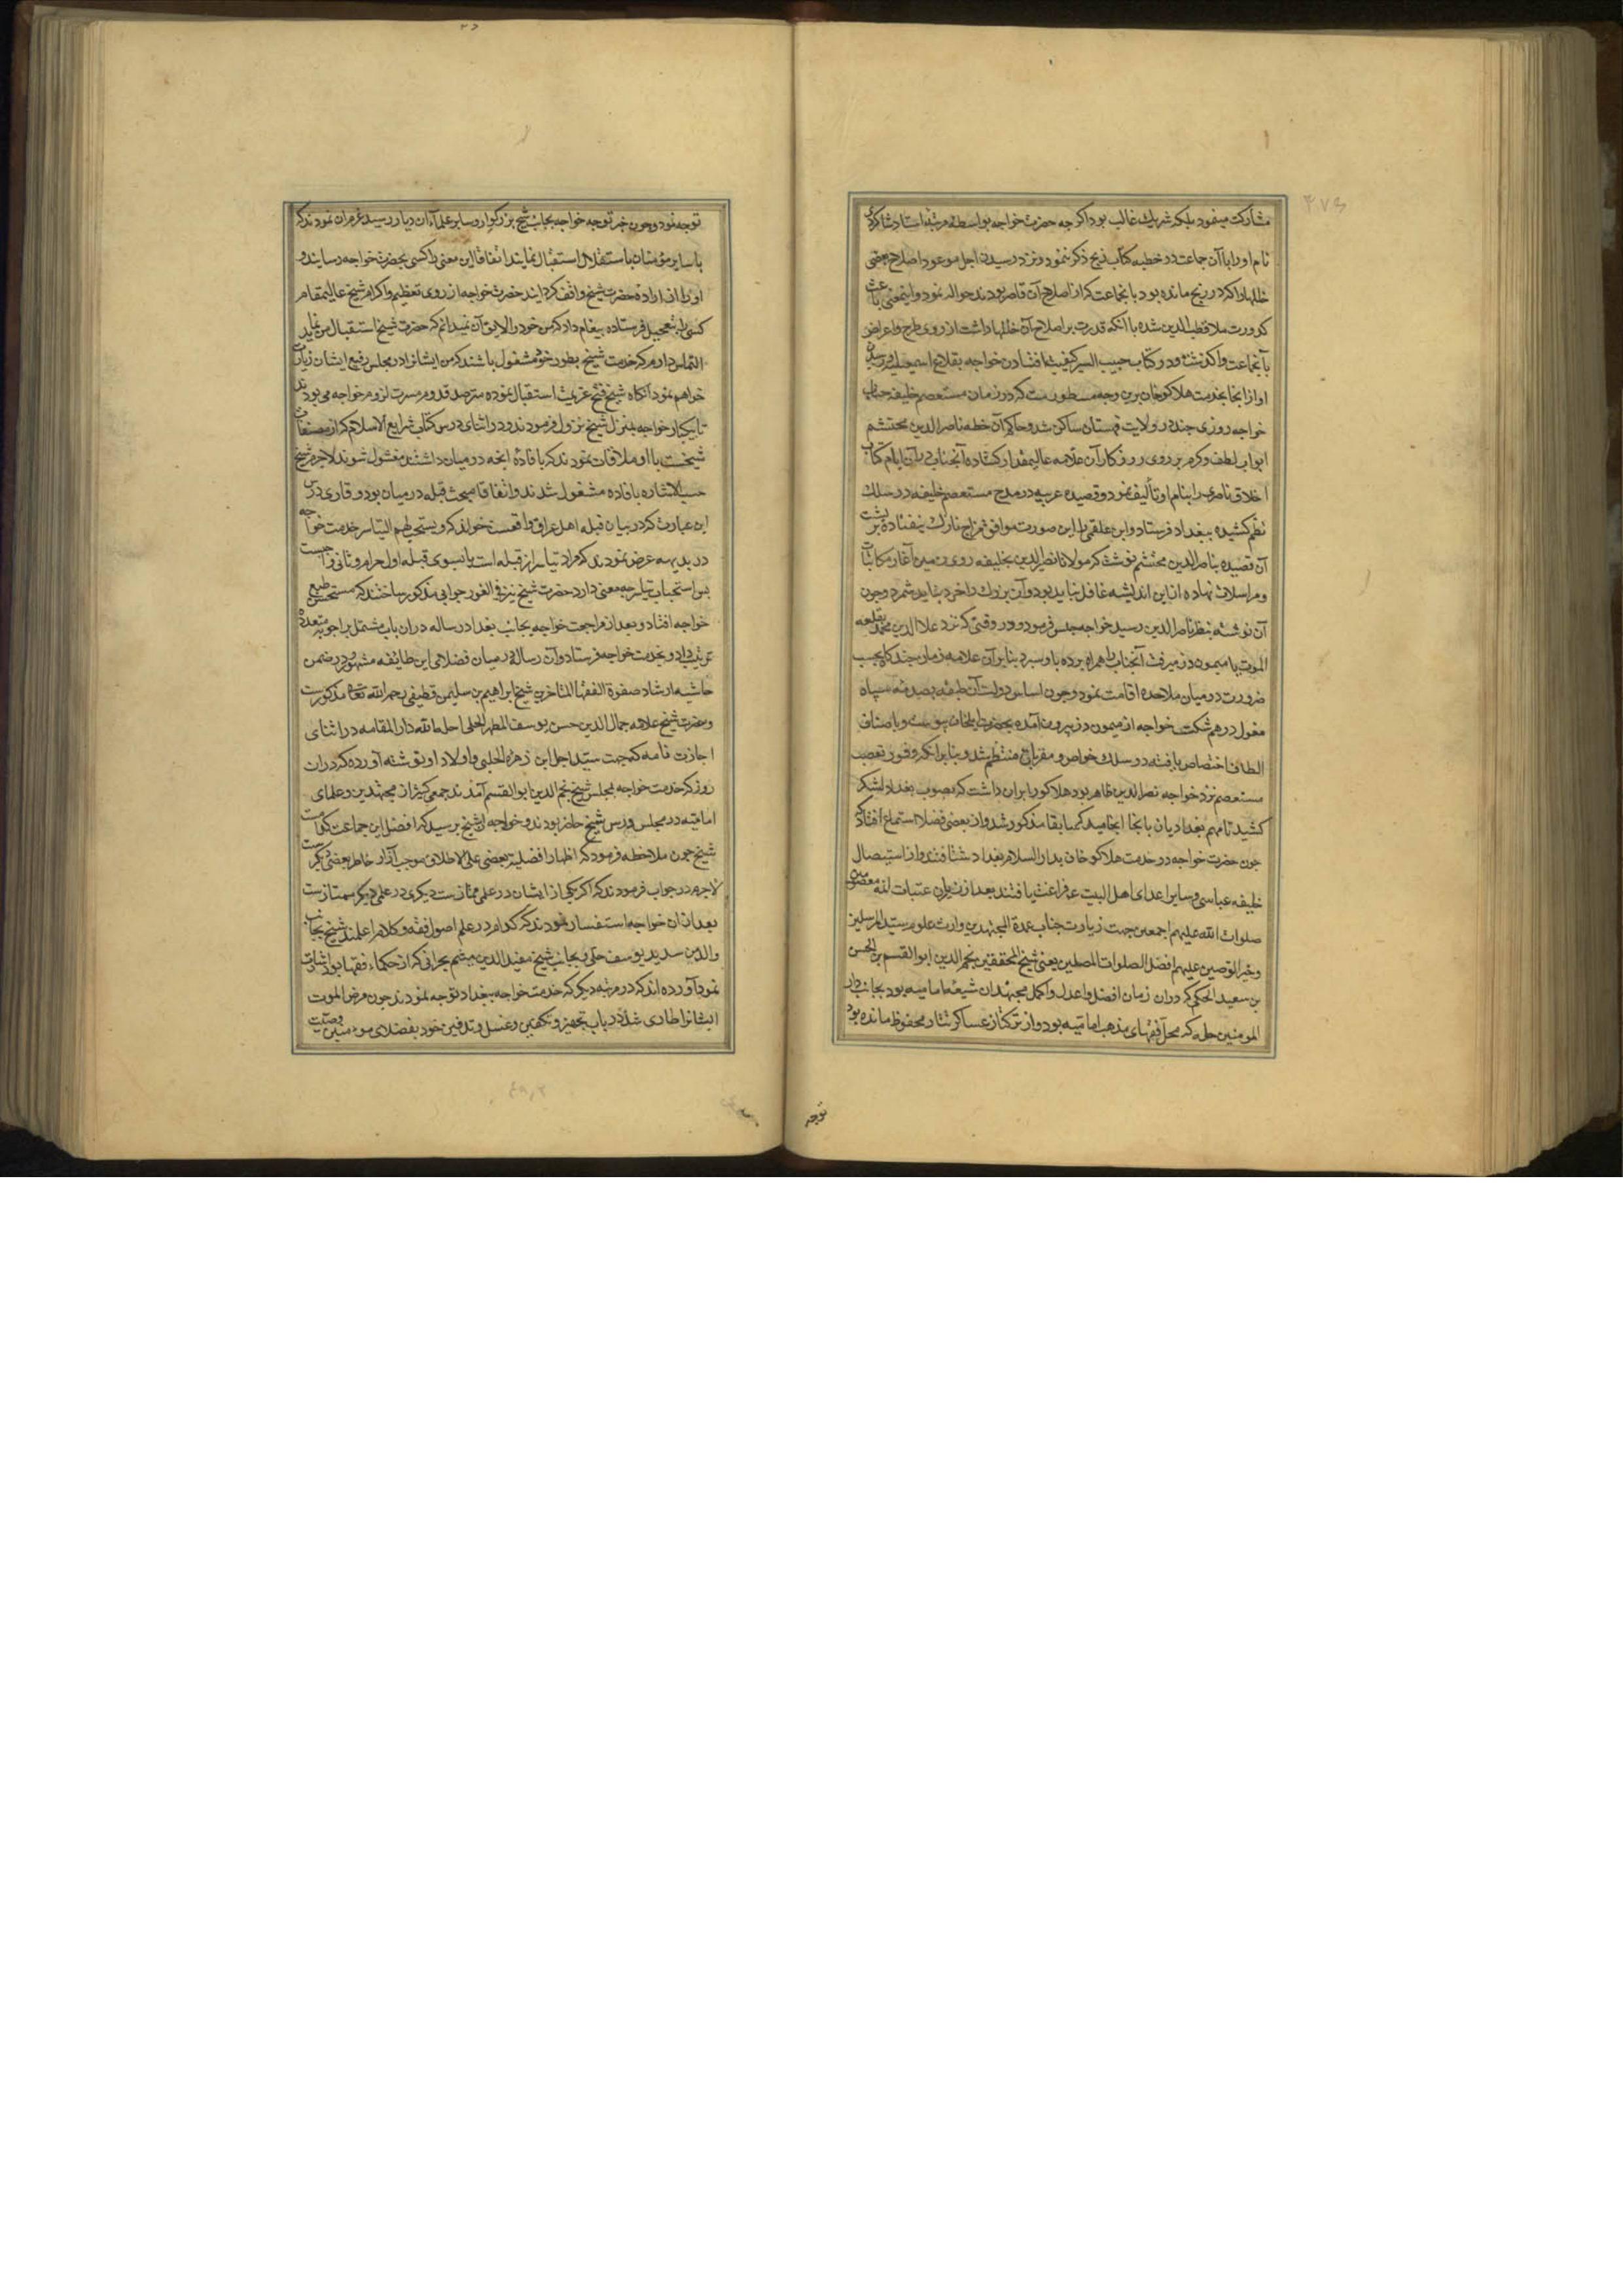 مشارکت مینمود بلکه شریک غالب بود اگرچه حضرت خواجه بواسطه مرتبه استاد شاکردی
نام او را با آن جماعت در خطبه کتاب زیج ذکر ننمود و نزد رسیدن اجل موعود اصلاح بعضی
خللها را که در زیج مانده بود با نجماعت که از اصلاح آن قاصر بودند حواله نمود و اینمعنی باعث
کدورت ملا قطب الدین شده با آنکه قدرت بر اصلاح آن خللها داشت از روی طرح و اعراض
بآنجماعت واکذشت و در کتاب حبیب السیر کیفیت افتادن خواجه بقلاع اسمعیلیه و رسیدن
او از انجا بخدمت هلاکوخان برین وجه مسطورست که در زمان مستعصم خلیفه جناب
خواجه روزی چند در ولایت قهستان ساکن شد و حاکم آن خطه ناصر الدین محتشم
ابواب لطف و کرم بر روی روزکار آن علامه عالیمقدار کشاده آنجناب در آن ایام کتاب
اخلاق ناصری را بنام او تألیف نمود و قصیده عربیه در مدح مستعصم خلیفه در سلک
نظم کشیده ببغداد فرستاد و ابن علقمی را این صورت موافق مزاج نازک نیفتاده بر پشت
آن قصیده بناصر الدین محتشم نوشت که مولانا نصیر الدین بخلیفه روی زمین آغاز مکاتبات
و مراسلات نهاده از این اندیشه غافل نباید بود و آن بزرک را خرد نباید شمرد و چون
آن نوشته بنظر ناصر الدین رسید خواجه حبس فرمود و در وقتی که نزد علا الدین محمد بقلعه
الموت یا میمون دز میرفت آنجناب را همراه برده باو سپرد بنا بر آن علامه زمان چند کاه بحسب
ضرورت در میان ملاحده اقامت نمود و چون اساس دولت آن طبقه بصدمه سپاه
مغول در هم شکست خواجه از میمون دز بیرون آمده بحضرت ایلخان پیوست و باصناف
الطاف اختصاص یافته در سلک خواص و مقربان منتظم شد و بنا بر آنکه وفور تعصب
مستعصم نزد خواجه نصیر الدین ظاهر بود هلاکو را بر آن داشت که بصوب بغداد لشکر
کشید تا مهم بغدادیان بانجا انجامید که سابقا مذکور شد و از بعضی فضلا استماع افتاد که
چون حضرت خواجه در خدمت هلاکو خان بدار السلام بغداد شتافتند و از استیصال
خلیفه عباسی و سایر اعدای اهل البیت ع فراغت یافتند بعد از زیارت عتبات ائمه معصومین
صلوات الله علیهم اجمعین جهت زیارت جناب عمدة المجتهدین وارث علوم سید المرسلین
و خیر الوصیین علیهم افضل الصلوات المصلین یعنی شیخ المحققین نجم الدین ابو القسم بن الحسن
بن سعید الحکی که دران زمان افضل و اعدل و اکمل مجتهدان شیعه امامیه بود بجانب دار
المومنین حله که محل فقهای مذهب امامیه بود و از ترکتاز عساکر تتار محفوظ مانده بود
توجه
توجه نمود و چون خبر توجه خواجه بجانب شیخ بزرکوار و سایر علماء ان دیار رسید عزم ان نمودند که
با سایر مؤمنان باستقلال استقبال نمایند اتفاقا این معنی را کسی بحضرت خواجه رسانید و
او را از اراده حضرت شیخ واقف کردانید حضرت خواجه از روی تعظیم و اکرام شیخ عالیمقام
کسی را بتعجیل فرستاده پیغام داد که من خود را لایق آن نمیدانم که حضرت شیخ استقبال من نماید
التماس دارم که خدمت شیخ بطور خود مشغول باشند که من ایشانرا در مجلس رفیع ایشان زیارت
خواهم نمود آنکاه شیخ فسخ عزیمت استقبال نموده مترصد قدوم مسرت لزوم خواجه می بودند
تا یکبار خواجه بمنزل شیخ نزول فرمودند و در اثنای درس کتاب شرایع الاسلام که از مصنفات
شیخست با او ملاقات نمودند که بافاده انچه در میان داشتند مشغول شوند لاجرم شیخ
حسب الاشاره بافاده مشغول شدند و اتفاقا مبحث قبله در میان بود و قاری درس
این عبارت که در بیان قبله اهل عراق واقعست خواند که و یستحب لهم التیاسر خدمت خواجه
در بدیهه عرض نمودند که مراد تیاسر از قبله است یا بسوی قبله اول حرام و ثانی واجبست
پس استحباب تیاسر چه معنی دارد حضرت شیخ نیز فی الفور جوابی مذکور ساختند که مستحسن طبع
خواجه افتاد و بعد از مراجعت خواجه بجانب بغداد رساله دران باب مشتمل بر اجوبه متعدده
ترتیب داد و بخدمت خواجه فرستاد و آن رساله در میان فضلای این طایفه مشهور و در ضمن
حاشیه ارشاد صفوة الفقها المتاخرین شیخ ابراهیم بن سلیمن قطیفی رحمه الله تعالی مذکورست
و حضرت شیخ علامه جمال الدین حسن بن یوسف المطهر الحلی احله الله دار المقامه در اثنای
اجازت نامه که جهت سید اجل ابن زهره الحلبی و اولاد او نوشته آورده که دران
روز که خدمت خواجه بمجلس شیخ نجم الدین ابو القسم آمدند جمعی کثیر از مجتهدین و علمای
امامیه در مجلس درس شیخ حاضر بودند و خواجه از شیخ پرسید که افضل این جماعت کدامست
شیخ چون ملاحظه فرمود که اظهار افضلیت بعضی علی الاطلاق موجب آزار خاطر بعضی دیکرست
لاجرم در جواب فرمودند که اکر یکی از ایشان در علمی ممتازست دیکری در علمی دیکر ممتازست
بعد ازان خواجه استفسار نمودند که کدام در علم اصول فقه و کلام اعلمند شیخ بجانب
والدین سدید یوسف حلی و بجانب شیخ مفید الدین میثم بحرانی که از حکماء فقها بود اشارت
نمود آورده اند که در مرتبه دیکر که خدمت خواجه ببغداد توجه نمودند چون مرض الموت
ایشانرا طاری شد در باب تجهیز و تکفین و غسل و تدفین خود بفضلای مومنین وصیت